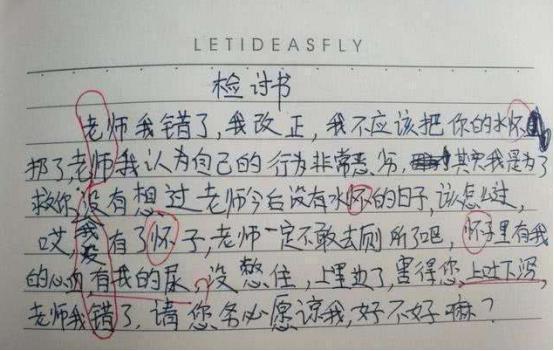 LETIDEASFLY
检讨书
老师我错了,我改正,我不应该把你的水怀
扔了,老师我认为自己的行为非常恶劣,其实我是为了
救你,没有想过老师今后没有水怀的日子,该怎么过,
哎,我爱有了怀子,老师一定不敢去厕所了吧,怀子里有我
的心血,有我的尿,没憋住,上里边了,害得您上吐下泻,
老师我错了,请您务必愿谅我,好不好嘛?